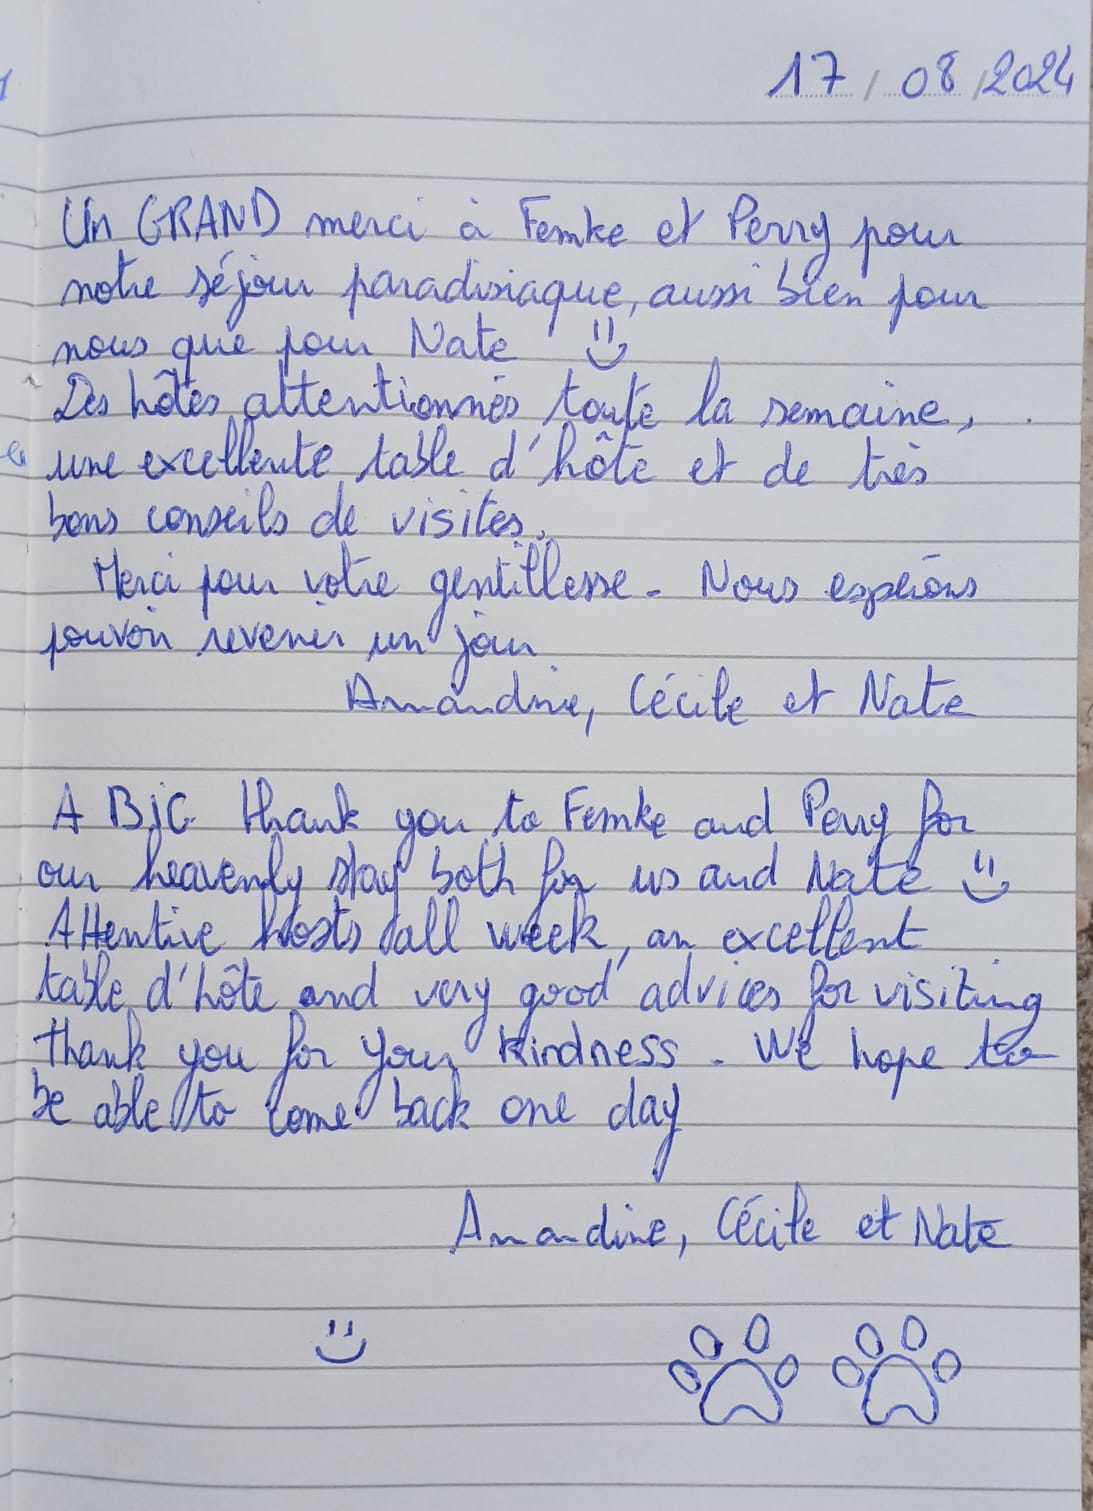 17/08/2024
Un GRAND merci à Femke et Perry pour
notre séjour paradisiaque, aussi bien pour
nous que pour Nate
Des hôtes attentionnés toute la semaine,
une excellente table d'hôte et de très
bons conseils de visites.
Merci pour votre gentillesse. Nous espérons
pouvoir revenir un jour
Amandine, Cécile et Nate
A BIG thank you to Femke and Perry for
our heavenly stay both for us and Nate
Attentive hosts all week, an excellent
table d'hôte and very good advices for visiting
thank you for your kindness. We hope to
be able to come back one day
Amandine, Cécile et Nate